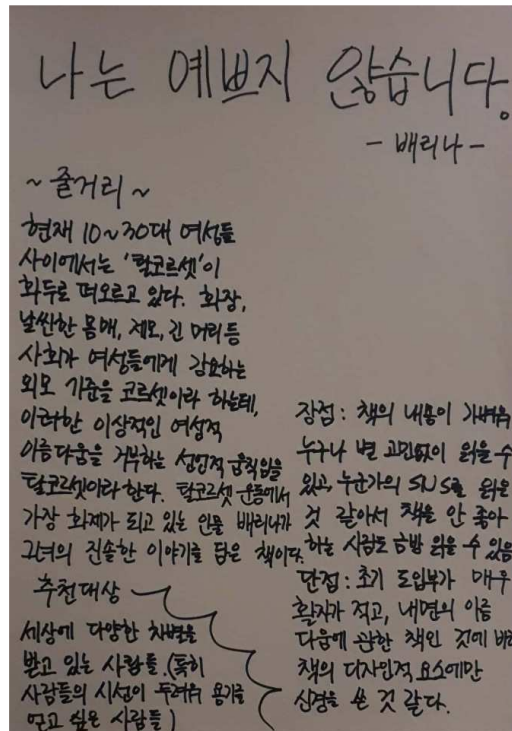 나는 예쁘지 않습니다.
- 배리나 -
~ 줄거리 ~
현재 10~30대 여성들
사이에서는 '탈코르셋'이
화두로 떠오르고 있다. 화장,
날씬한 몸매, 제모, 긴 머리 등
사회가 여성들에게 강요하는
외모 기준을 코르셋이라 하는데,
이러한 이상적인 여성적
아름다움을 거부하는 선언적 움직임을
탈코르셋이라 한다. 탈코르셋 운동에서
가장 화제가 되고 있는 인물 배리나가
그녀의 진솔한 이야기를 담은 책이다.
추천대상
세상에 다양한 차별을
받고 있는 사람들. (특히
사람들의 시선이 두려워 용기를
얻고 싶은 사람들)
장점 : 책의 내용이 가벼워
누구나 별 고민없이 읽을 수
있고, 누군가의 SNS를 읽은
것 같아서 책을 안 좋아
하는 사람도 금방 읽을 수 있음
단점 : 초기 도입부가 매우
활자가 적고, 내면의 아름
다움에 관한 책인 것에 비해
책의 디자인적 요소에만
신경을 쓴 것 같다.